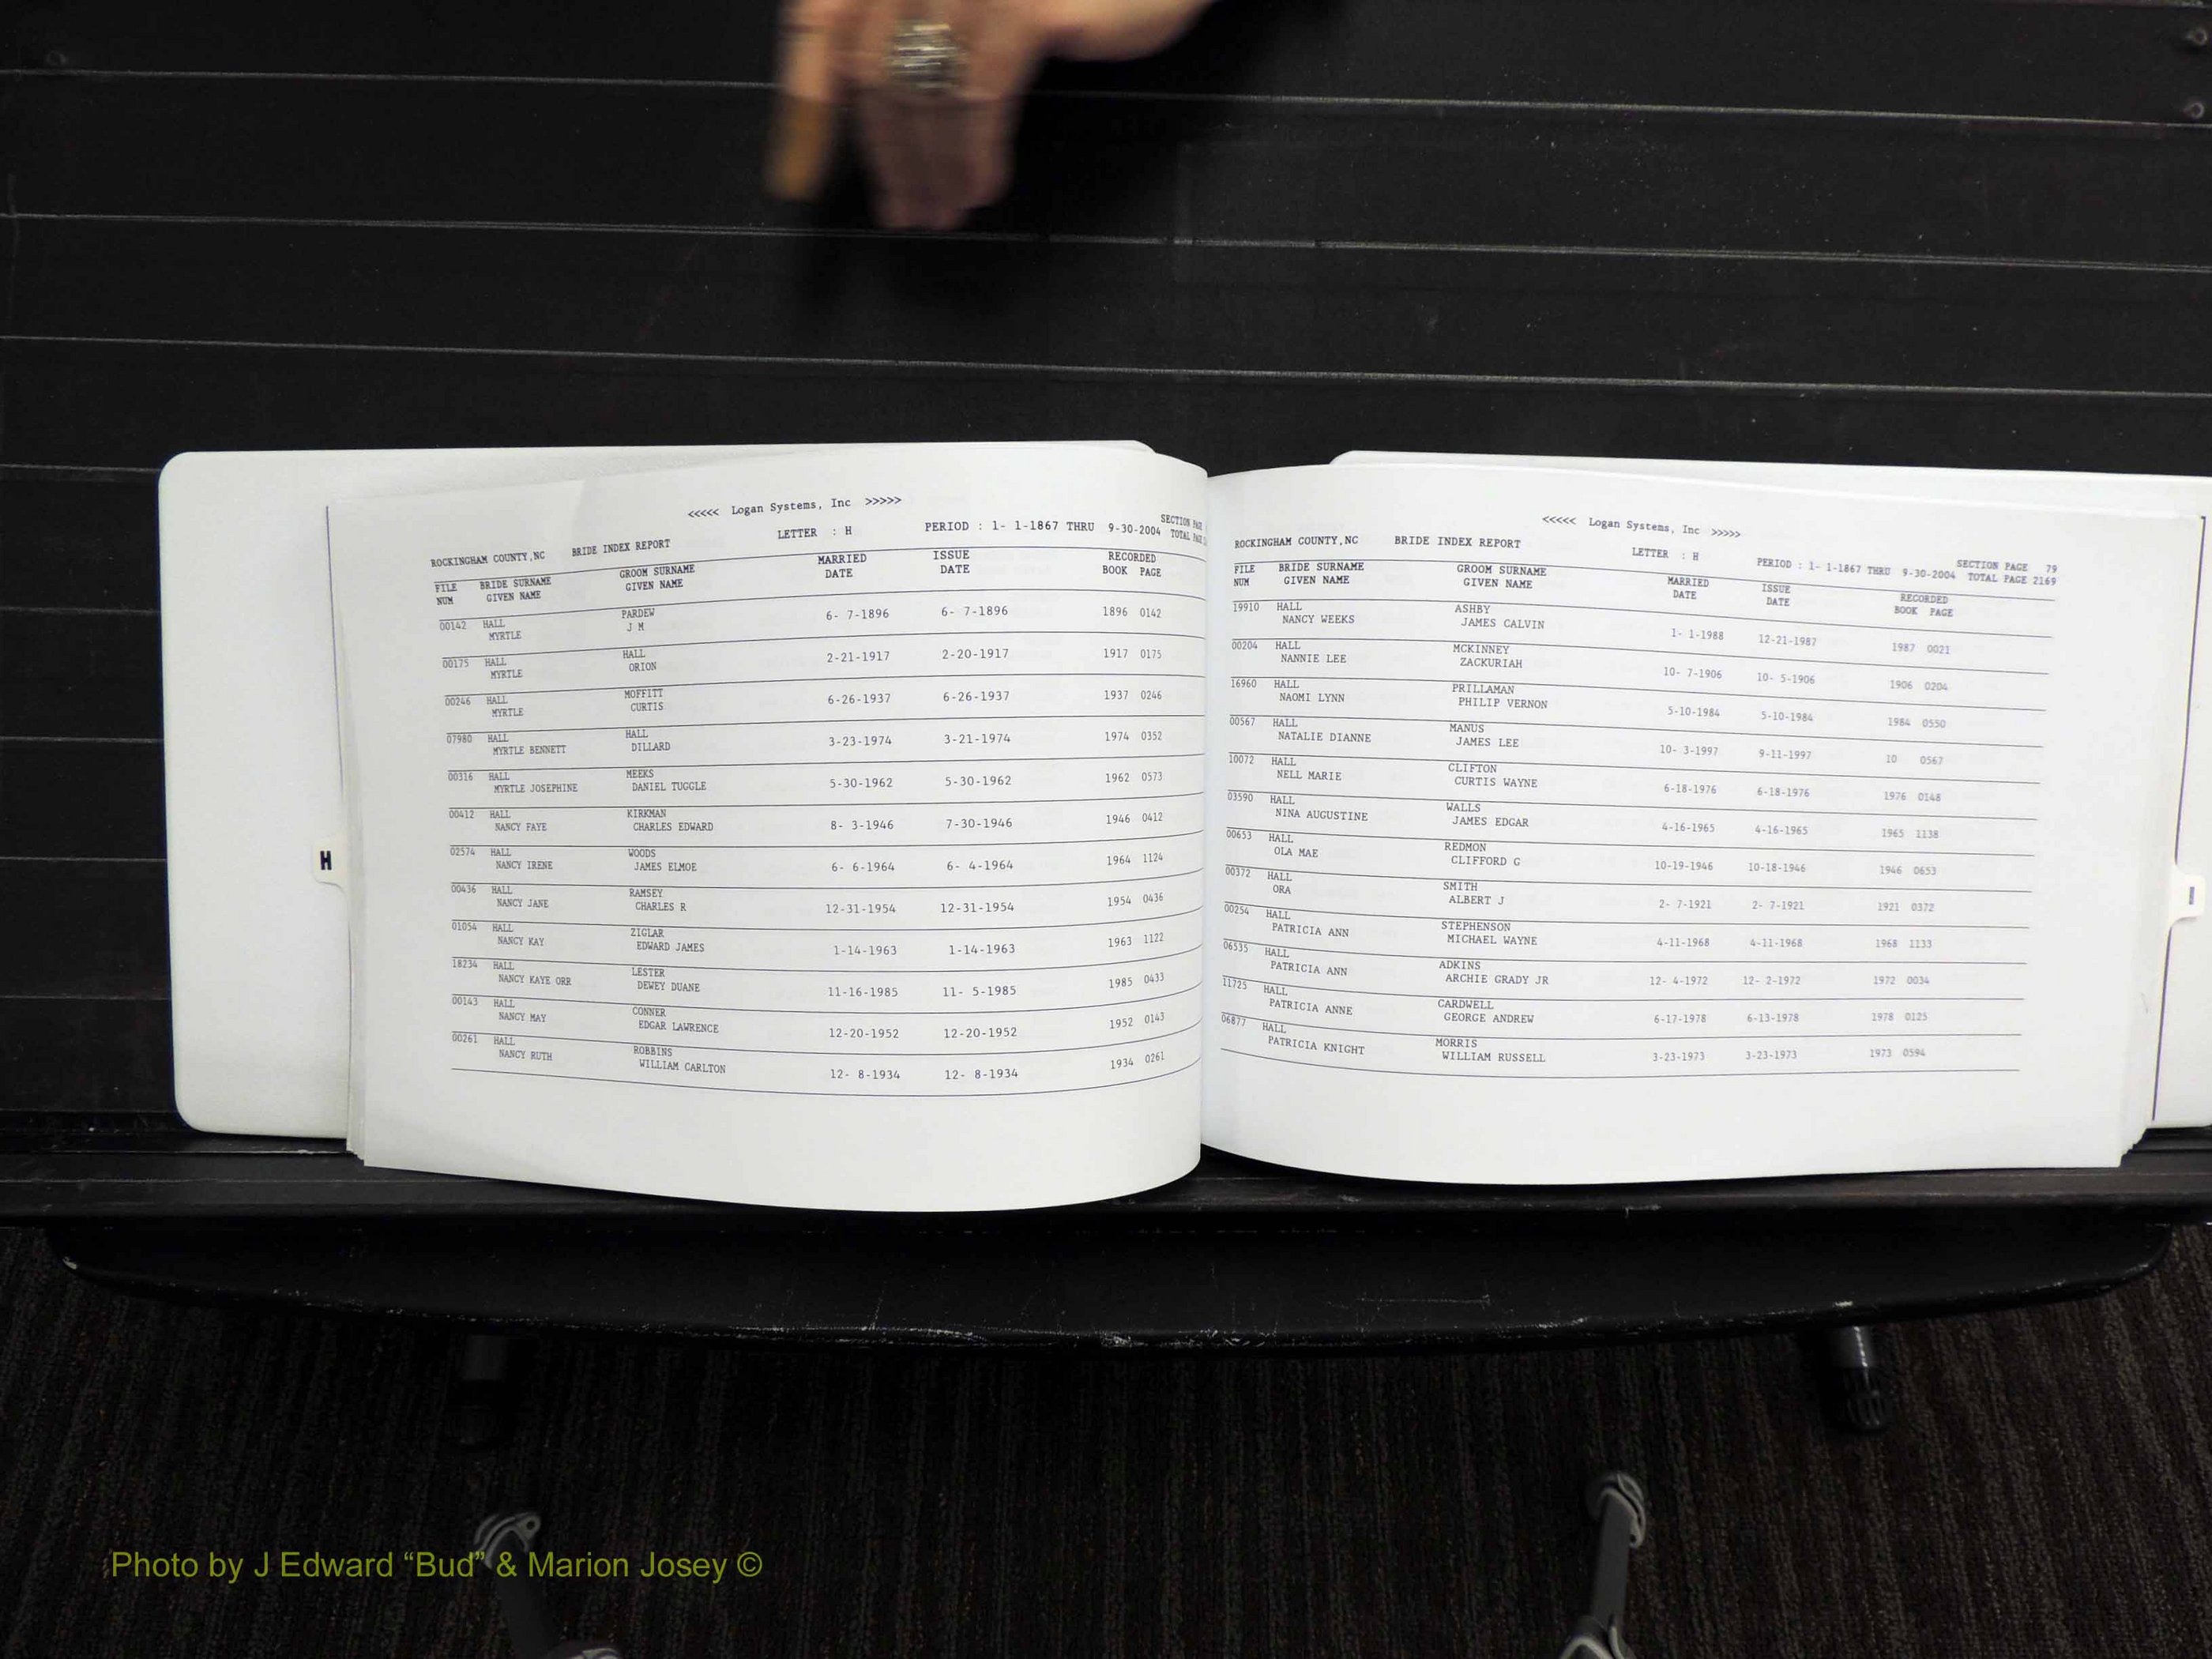 <<<<< Logan Systems, Inc >>>>>
ROCKINGHAM COUNTY,NC BRIDE INDEX REPORT LETTER : H PERIOD : 1- 1-1867 THRU 9-30-2004 SECTION PAGE
TOTAL PAGE
FILE BRIDE SURNAME GROOM SURNAME MARRIED ISSUE RECORDED
NUM GIVEN NAME GIVEN NAME DATE DATE BOOK PAGE
00142 HALL PARDEW 6- 7-1896 6- 7-1896 1896 0142
MYRTLE J M
00175 HALL HALL 2-21-1917 2-20-1917 1917 0175
MYRTLE ORION
00246 HALL MOFFITT 6-26-1937 6-26-1937 1937 0246
MYRTLE CURTIS
07980 HALL HALL 3-23-1974 3-21-1974 1974 0352
MYRTLE BENNETT DILLARD
00316 HALL MEEKS 5-30-1962 5-30-1962 1962 0573
MYRTLE JOSEPHINE DANIEL TUGGLE
00412 HALL KIRKMAN 8- 3-1946 7-30-1946 1946 0412
NANCY FAYE CHARLES EDWARD
02574 HALL WOODS 6- 6-1964 6- 4-1964 1964 1124
NANCY IRENE JAMES ELMOE
00436 HALL RAMSEY 12-31-1954 12-31-1954 1954 0436
NANCY JANE CHARLES R
01054 HALL ZIGLAR 1-14-1963 1-14-1963 1963 1122
NANCY KAY EDWARD JAMES
18234 HALL LESTER 11-16-1985 11- 5-1985 1985 0433
NANCY KAYE ORR DEWEY DUANE
00143 HALL CONNER 12-20-1952 12-20-1952 1952 0143
NANCY MAY EDGAR LAWRENCE
00261 HALL ROBBINS 12- 8-1934 12- 8-1934 1934 0261
NANCY RUTH WILLIAM CARLTON
H
<<<<< Logan Systems, Inc >>>>>
ROCKINGHAM COUNTY,NC BRIDE INDEX REPORT LETTER : H PERIOD : 1- 1-1867 THRU 9-30-2004 SECTION PAGE 79
TOTAL PAGE 2169
FILE BRIDE SURNAME GROOM SURNAME MARRIED ISSUE RECORDED
NUM GIVEN NAME GIVEN NAME DATE DATE BOOK PAGE
19910 HALL ASHBY 1- 1-1988 12-21-1987 1987 0021
NANCY WEEKS JAMES CALVIN
00204 HALL MCKINNEY 10- 7-1906 10- 5-1906 1906 0204
NANNIE LEE ZACKURIAH
16960 HALL PRILLAMAN 5-10-1984 5-10-1984 1984 0550
NAOMI LYNN PHILIP VERNON
00567 HALL MANUS 10- 3-1997 9-11-1997 10 0567
NATALIE DIANNE JAMES LEE
10072 HALL CLIFTON 6-18-1976 6-18-1976 1976 0148
NELL MARIE CURTIS WAYNE
03590 HALL WALLS 4-16-1965 4-16-1965 1965 1138
NINA AUGUSTINE JAMES EDGAR
00653 HALL REDMON 10-19-1946 10-18-1946 1946 0653
OLA MAE CLIFFORD G
00372 HALL SMITH 2- 7-1921 2- 7-1921 1921 0372
ORA ALBERT J
00254 HALL STEPHENSON 4-11-1968 4-11-1968 1968 1133
PATRICIA ANN MICHAEL WAYNE
06535 HALL ADKINS 12- 4-1972 12- 2-1972 1972 0034
PATRICIA ANN ARCHIE GRADY JR
11725 HALL CARDWELL 6-17-1978 6-13-1978 1978 0125
PATRICIA ANNE GEORGE ANDREW
06877 HALL MORRIS 3-23-1973 3-23-1973 1973 0594
PATRICIA KNIGHT WILLIAM RUSSELL
I
Photo by J Edward “Bud” & Marion Josey ©